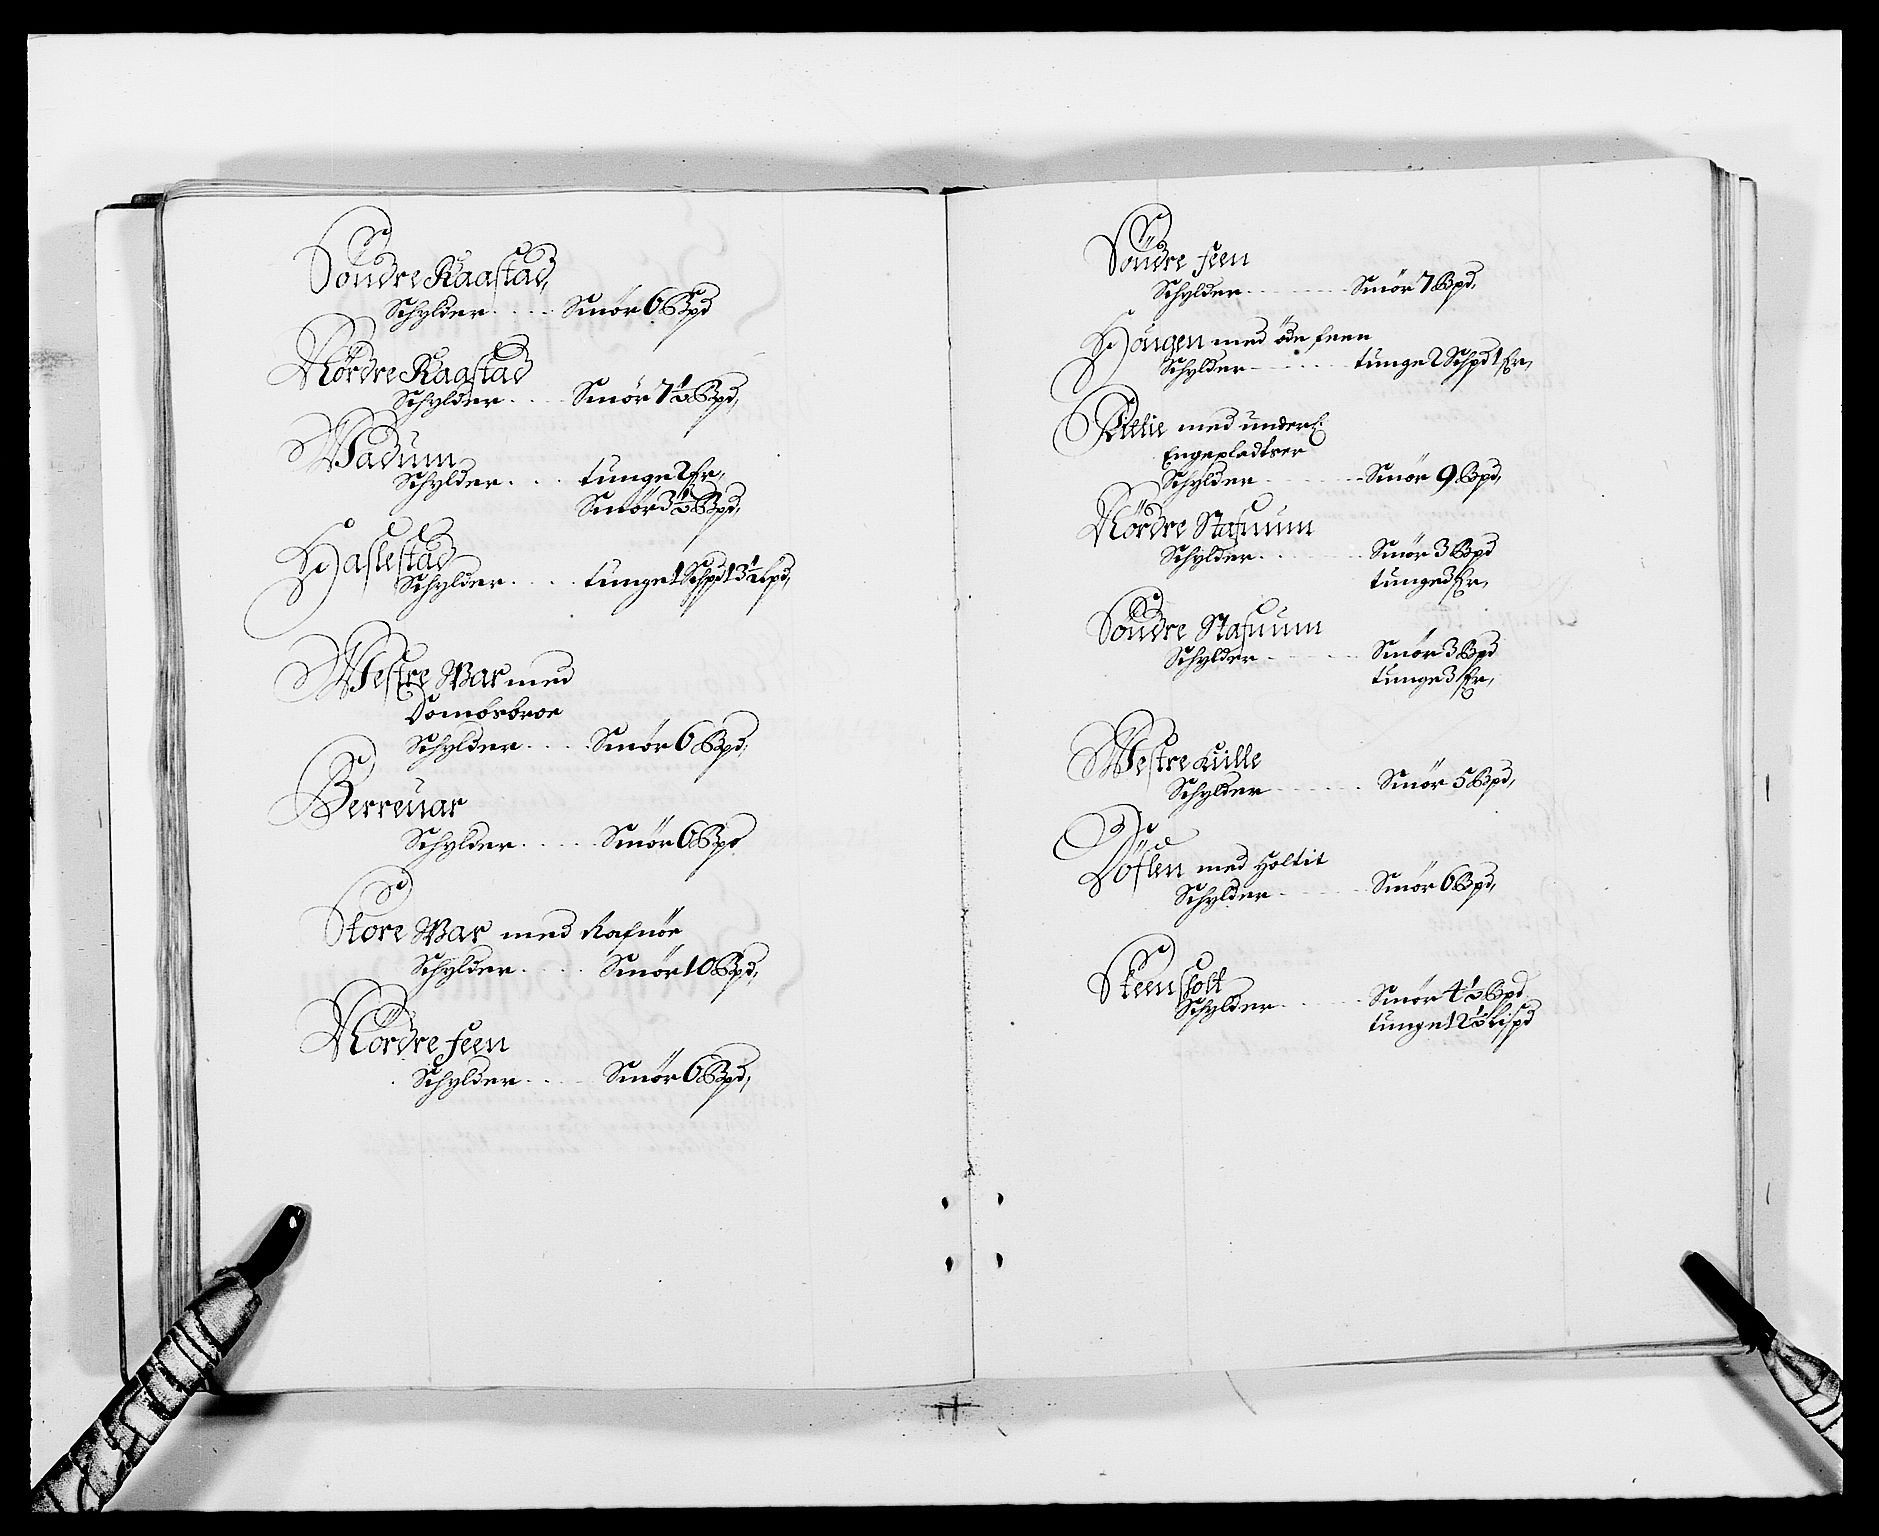 Söndre Kaastad,
Schylder . . . . Smör 6 Bpd
Nördre Kaastad
Schylder . . . . Smör 7½ Bpd,
Wadum
Schylder . . . . tunge 2 Fr,
Smör 3½ Bpd,
Haslestad
Schylder . . . . tunge 1 Schpd 13½ Lpd,
Westre War med
Dombsbroe
Schylder . . . . Smör 6 Bpd,
Berreuar
Schylder . . . . Smör 6 Bpd
Store War med Rafnöe
Schylder . . . . Smör 10 Bpd,
Nordre feen
Schylder . . . . Smör 6 Bpd,
Söndre feen
Schylder . . . . Smör 7 Bpd,
Hougen med öde feen
Schylder . . . . tunge 2 Schpd 1 Fr,
Lillie med underl:
Engepladtser
Schylder . . . . Smör 9 Bpd,
Nördre Stafnum
Schylder . . . . Smör 3 Bpd
tunge 3 Fr,
Söndre Stafnum
Schylder . . . . Smör 3 Bpd
tunge 3 Fr,
Westre Lille
Schylder . . . . Smör 5 Bpd,
Döflen med Holtit
Schylder . . . . Smör 6 Bpd,
Steensholt
Schylder . . . . Smör 4½ Bpd
tunge 12½ Lispd